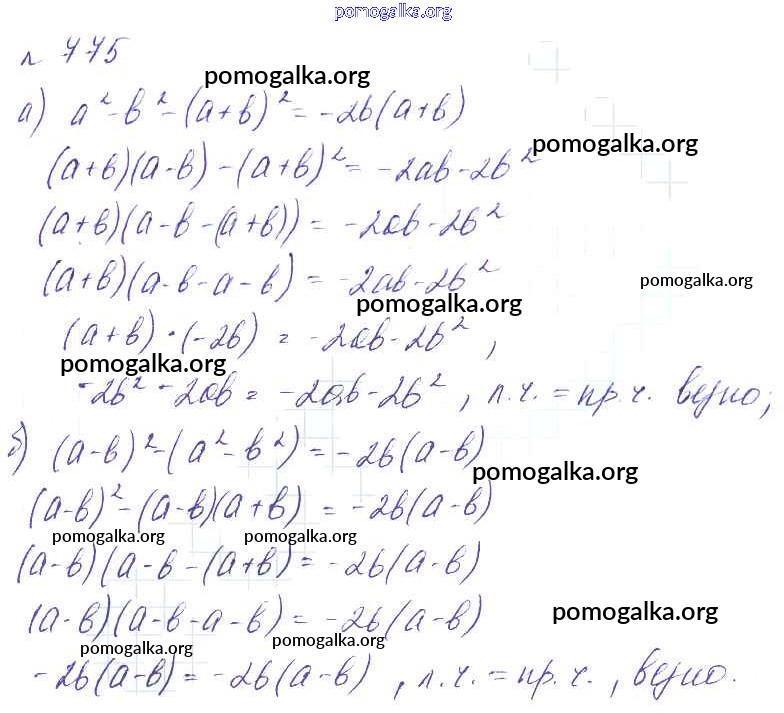 pomogalka.org
№ 775
pomogalka.org
а) a² - b² - (a+b)² = -2b(a+b)
pomogalka.org
(a+b)(a-b) - (a+b)² = -2ab - 2b²
(a+b)(a-b-(a+b)) = -2ab - 2b²
(a+b)(a-b-a-b) = -2ab - 2b²
pomogalka.org
pomogalka.org
(a+b)·(-2b) = -2ab - 2b²,
pomogalka.org
-2b² - 2ab = -2ab - 2b², л.ч. = пр.ч. верно;
б) (a-b)² - (a² - b²) = -2b(a-b)
pomogalka.org
(a-b)² - (a-b)(a+b) = -2b(a-b)
pomogalka.org pomogalka.org
(a-b)(a-b-(a+b) = -2b(a-b)
(a-b)(a-b-a-b) = -2b(a-b)
pomogalka.org
pomogalka.org pomogalka.org
-2b(a-b) = -2b(a-b), л.ч. = пр.ч., верно.